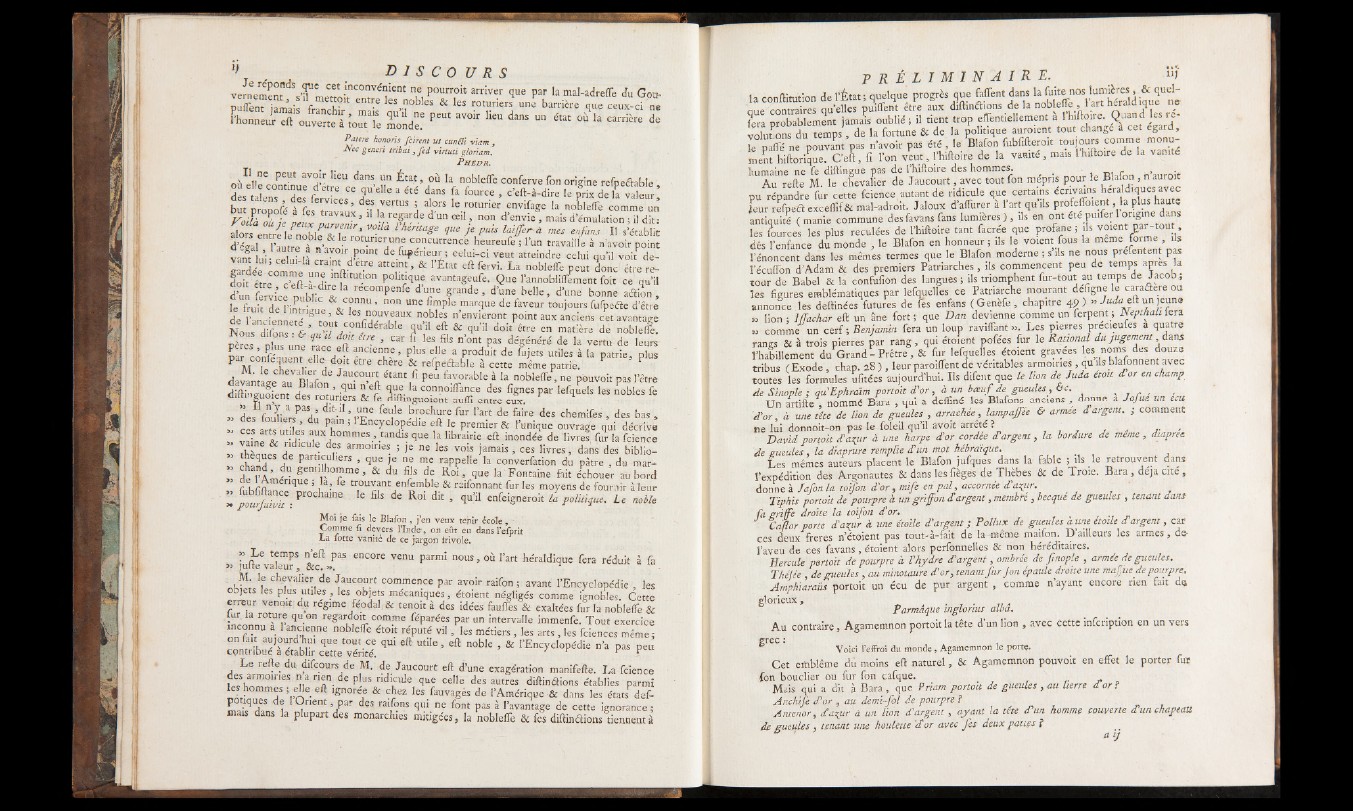 ij
DISCOURS
Je réponds que cet inconvénient ne pourroit arriver que par la mal-adreſſe du Gou-
vernement, s'il mettoit entre les nobles & les roturiers une barrière que ceux-ci ne
puſſent jamais franchir, mais qu'il ne peut avoir lieu dans un état où la carrière de
l'honneur eſt ouverte à tout le monde.
Patere honoris ſcirent ut cuncti viam,
Nec generi tribui, ſed virtuti gloriam.
PHEDR.
Il ne peut avoir lieu dans un État, où la nobleſſe conſerve ſon origine reſpectable,
où elle continue d'être ce qu'elle a été dans ſa ſource, c'eſt-à-dire le prix de la valeur,
des talens, des ſervices, des vertus; alors le roturier enviſage la nobleſſe comme un
but propoſé à ſes travaux, il la regarde d'un œil, non d'envie, mais d'émulation; il dit:
Voilà où je peux parvenir, voilà l'héritage que je puis laiſſer à mes enfans. Il s'établit
alors entre le noble & le roturier une concurrence heureuſe; l'un travaille à n'avoir point
d'égal, l'autre à n'avoir point de ſupérieur; celui-ci veut atteindre celui qu'il voit de-
vant lui; celui-là craint d'être atteint, & l'État eſt ſervi. La nobleſſe peut donc être re-
gardée comme une inſtitution politique avantageuſe. Que l'annobliſſement ſoit ce qu'il
doit être, c'eſt-à-dire la récompenſe d'une grande, d'une belle, d'une bonne action,
d'un ſervice public & connu, non une ſimple marque de faveur toujours ſuſpecte d'être
le fruit de l'intrigue, & les nouveaux nobles n'envieront point aux anciens cet avantage
de l'ancienneté, tout conſidérable qu'il eſt & qu'il doit être en matière de nobleſſe.
Nous diſons: & qu'il doit être, car ſi les fils n'ont pas dégénéré de la vertu de leurs
pères, plus une race eſt ancienne, plus elle a produit de ſujets utiles à la patrie, plus
par conſéquent elle doit être chère & reſpectable à cette même patrie.
M. le chevalier de Jaucourt étant ſi peu favorable à la nobleſſe, ne pouvoit pas l'être
davantage au Blaſon, qui n'eſt que la connoiſſance des ſignes par leſquels les nobles ſe
diſtinguoient des roturiers & ſe diſtinguoient auſſi entre eux.
» Il n'y a pas, dit-il, une ſeule brochure ſur l'art de faire des chemiſes, des bas,
» des ſouliers, du pain; l'Encyclopédie eſt le premier & l'unique ouvrage qui décrive
» ces arts utiles aux hommes, tandis que la librairie eſt inondée de livres ſur la ſcience
» vaine & ridicule des armoiries; je ne les vois jamais, ces livres, dans des biblio-
» thèques de particuliers, que je ne me rappelle la converſation du pâtre, du mar-
» chand, du gentilhomme, & du fils de Roi, que la Fontaine fait échouer au bord
» de l'Amérique; là, ſe trouvant enſemble & raiſonnant ſur les moyens de fournir à leur
» ſubſiſtance prochaine le fils de Roi dit, qu'il enſeigneroit la politique. Le noble
» pourſuivit :
Moi je ſais le Blaſon, j'en veux tenir école,
Comme ſi devers l'Inde, on eût eu dans l'eſprit
La ſotte vanité de ce jargon frivole.
» Le temps n'eſt pas encore venu parmi nous, où l'art héraldique ſera réduit à ſa
» juſte valeur, &c. ».
M. le chevalier de Jaucourt commence par avoir raiſon; avant l'Encyclopédie, les
objets les plus utiles, les objets mécaniques, étoient négligés comme ignobles. Cette
erreur venoit du régime féodal & tenoit à des idées fauſſes & exaltées ſur la nobleſſe &
ſur la roture qu'on regardoit comme ſéparées par un intervalle immenſe. Tout exercice
inconnu à l'ancienne nobleſſe étoit réputé vil, les métiers, les arts, les ſciences même;
on ſait aujourd'hui que tout ce qui eſt utile, eſt noble, & l'Encyclopédie n'a pas peu
contribué à établir cette vérité.
Le reſte du diſcours de M. de Jaucourt eſt d'une exagération manifeſte. La ſcience
des armoiries n'a rien de plus ridicule que celle des autres diſtinctions établies parmi
les hommes; elle eſt ignorée & chez les ſauvages de l'Amérique & dans les états deſ-
potiques de l'Orient, par des raiſons qui ne ſont pas à l'avantage de cette ignorance;
mais dans la plupart des monarchies mitigées, la nobleſſe & ſes diſtinctions tiennent à
PRÉLIMINAIRE.
iij
la conſtitution de l'État; quelque progrès que faſſent dans la ſuite nos lumières, & quel-
que contraires qu'elles puiſſent être aux diſtinctions de la nobleſſe, l'art héraldique ne
ſera probablement jamais oublié; il tient trop eſſentiellement à l'hiſtoire. Quand les ré-
volutions du temps, de la fortune & de la politique auroient tout changé à cet égard,
le paſſé ne pouvant pas n'avoir pas été, le Blaſon ſubſiſteroit toujours comme monu-
ment hiſtorique. C'eſt, ſi l'on veut, l'hiſtoire de la vanité, mais l'hiſtoire de la vanité
humaine ne ſe diſtingue pas de l'hiſtoire des hommes.
Au reſte M. le chevalier de Jaucourt, avec tout ſon mépris pour le Blaſon, n'auroit
pu répandre ſur cette ſcience autant de ridicule que certains écrivains héraldiques avec
leur reſpect exceſſif & mal-adroit. Jaloux d'aſſurer à l'art qu'ils profeſſoient, la plus haute
antiquité (manie commune des ſavans ſans lumières), ils en ont été puiſer l'origine dans
les ſources les plus reculées de l'hiſtoire tant ſacrée que profane; ils voient par-tout,
dès l'enfance du monde, le Blaſon en honneur; ils le voient ſous la même forme, ils
l'énoncent dans les mêmes termes que le Blaſon moderne; s'ils ne nous préſentent pas
l'écuſſon d'Adam & des premiers Patriarches, ils commencent peu de temps après la
tour de Babel & la confuſion des langues; ils triomphent ſur-tout au temps de Jacob;
les figures emblématiques par leſquelles ce Patriarche mourant déſigne le caractère ou
annonce les deſtinées futures de ſes enfans (Genèſe, chapitre 49) » Juda eſt un jeune
» lion; Iſſachar eſt un âne fort; que Dan devienne comme un ſerpent; Nepthali ſera
» comme un cerf; Benjamin ſera un loup raviſſant ». Les pierres précieuſes à quatre
rangs & à trois pierres par rang, qui étoient poſées ſur le Rational du jugement, dans
l'habillement du Grand-Prêtre, & ſur leſquelles étoient gravées les noms des douze
tribus (Exode, chap. 28), leur paroiſſent de véritables armoiries, qu'ils blaſonnent avec
toutes les formules uſitées aujourd'hui. Ils diſent que le lion de Juda étoit d'or en champ
de Sinople; qu'Ephraïm portoit d'or, à un bœuf de gueules, &c.
Un artiſte, nommé Bara, qui a deſſiné les Blaſons anciens, donne à Joſué un écu
d'or, à une tête de lion de gueules, arrachée, lampaſſée & armée d'argent. ; comment
ne lui donnoit-on pas le ſoleil qu'il avoit arrété ?
David portoit d'azur à une harpe d'or cordée d'argent, la bordure de même, diaprée
de gueules, la diaprure remplie d'un mot hébraïque.
Les mêmes auteurs placent le Blaſon juſques dans la fable; ils le retrouvent dans
l'expédition des Argonautes & dans les ſièges de Thèbes & de Troie. Bara, déja cité,
donne à Jaſon la toiſon d'or, miſe en pal, accornée d'azur.
Tiphis portoit de pourpre à un griffon d'argent, membré, becqué de gueules, tenant dans
ſa griffe droite la toiſon d'or.
Caſtor porte d'azur à une étoile d'argent; Pollux de gueules à une étoile d'argent, car
ces deux freres n'étoient pas tout-à-fait de la même maiſon. D'ailleurs les armes, de
l'aveu de ces ſavans, étoient alors perſonnelles & non héréditaires.
Hercule portoit de pourpre à l'hydre d'argent, ombrée de ſinople, armée de gueules.
Théſée, de gueules, au minotaure d'or, tenant ſur ſon épaule droite une maſſue de pourpre.
Amphiaraüs portoit un écu de pur argent, comme n'ayant encore rien fait de
glorieux,
Parmáque inglorius albâ.
Au contraire, Agamemnon portoit la tête d'un lion, avec cette inſcription en un vers
grec :
Voici l'effroi du monde, Agamemnon le porte.
Cet emblême du moins eſt naturel, & Agamemnon pouvoit en effet le porter ſur
ſon bouclier ou ſur ſon caſque.
Mais qui a dit à Bara, que Priam portoit de gueules, au lierre d'or ?
Anchiſe d'or, au demi-ſol de pourpre ?
Antenor, d'azur à un lion d'argent, ayant la tête d'un homme couverte d'un chapeau
de gueules, tenant une houlette d'or avec ſes deux pattes ?
a ij